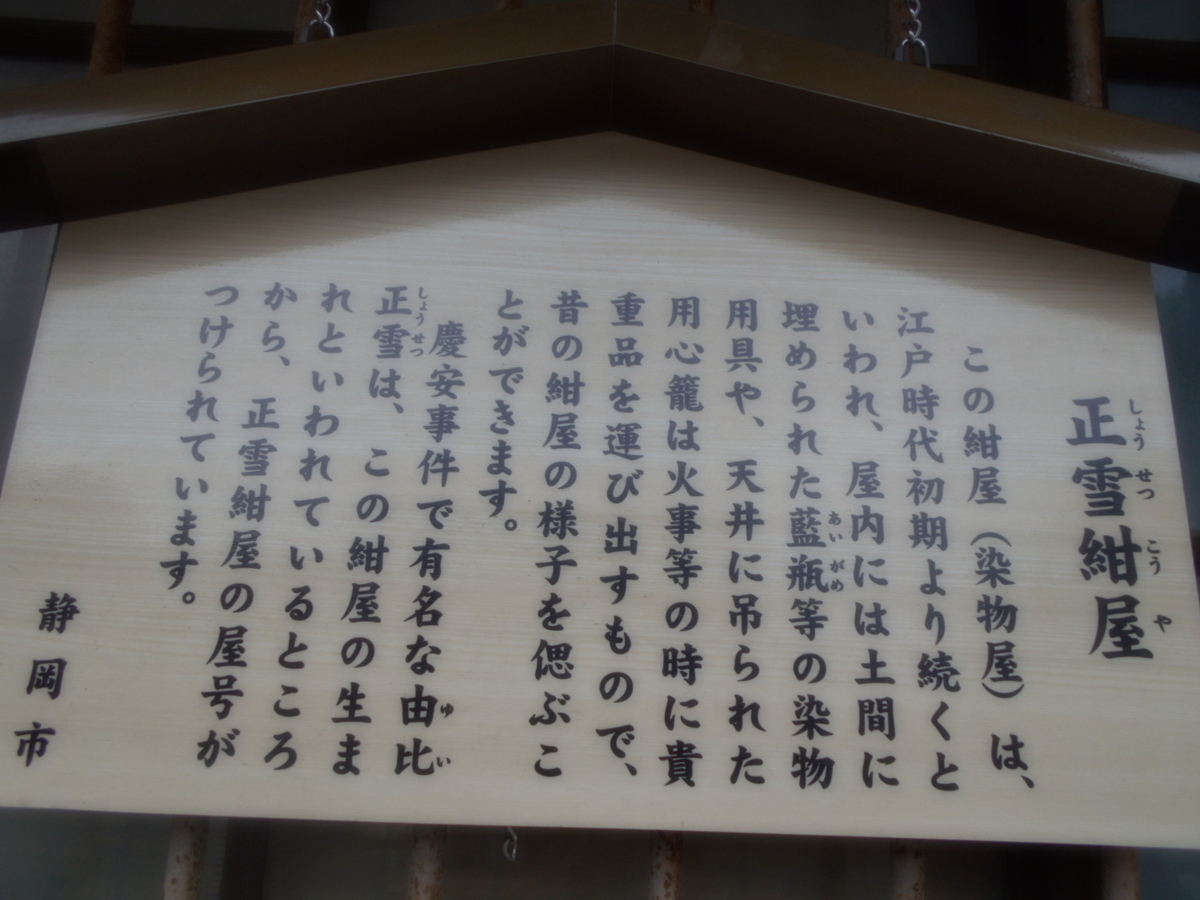 正雪紺屋
しょうせつこうや
この紺屋(染物屋)は、
江戸時代初期より続くと
いわれ、屋内には土間に
埋められた藍瓶等の染物
あいがめ
用具や、天井に吊られた
用心籠は火事等の時に貴
重品を運び出すもので、
昔の紺屋の様子を偲ぶこ
とができます。
慶安事件で有名な由比
ゆい
正雪は、この紺屋の生ま
しょうせつ
れといわれているところ
から、正雪紺屋の屋号が
つけられています。
静岡市